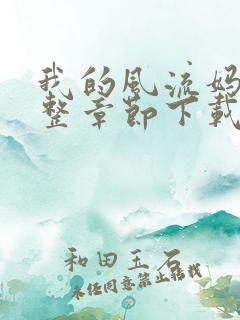 我的风流妈
整章节下载
和田玉石
未经同意禁止转载